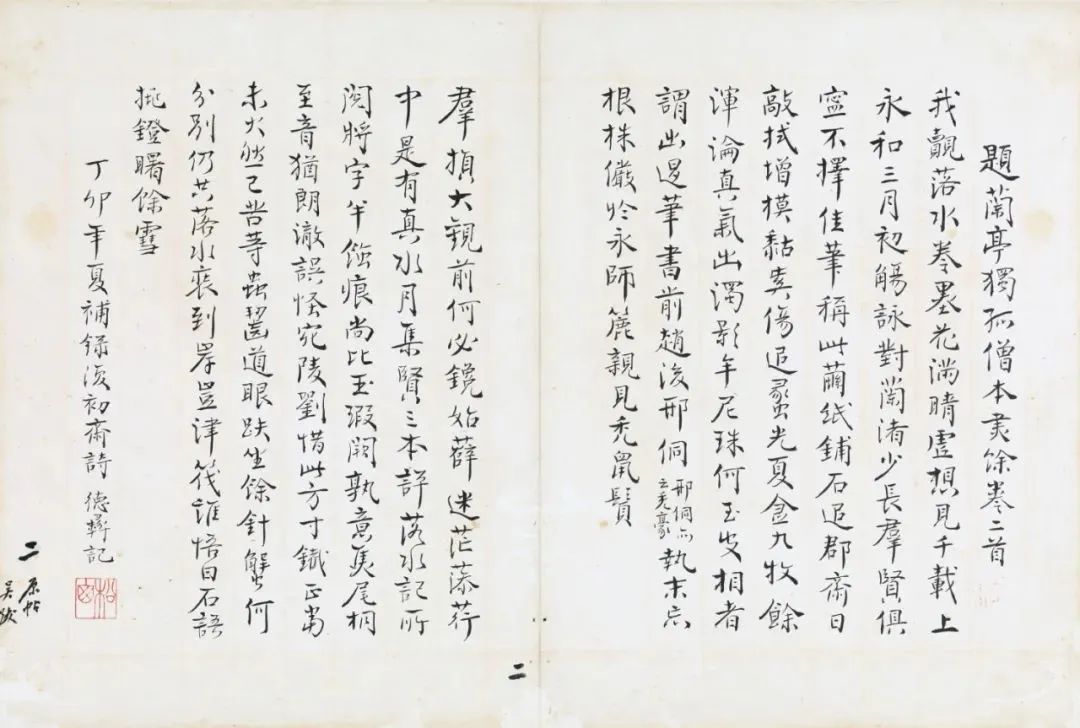 題蘭亭獨孤僧本燼餘卷二首
我觀落水卷墨花滿晴虛想見千載上
永和三月初觴詠對蘭渚少長羣賢俱
寧不擇佳筆稱此繭紙鋪石追郡齋日
敲拭增摸黏奚傷追蠡光夏金九牧餘
渾淪真氣出濁影牟尼珠何玉叟相者
謂出退筆書前趙後邢侗邢侗亦云禿豪執末忘
根株儼然永師簏親見禿鼠鬚
羣損大觀前何必鑱始薛迷茫藻荇
中是有真水月集賢三本評落水記所
閱將字半蝕痕尚比玉瑕闕孰意焦尾桐
至音猶朗澈誤怪宛陵劉惜此方寸鐵正當
未火然已苦等蟲齧道眼趺坐餘針蟹何
分別仍共落水裝到岸豈津筏誰悟白石語
挑鐙曙餘雪
丁卯年夏補錄復初齋詩 德彝記
二
二 原帖
吳跋